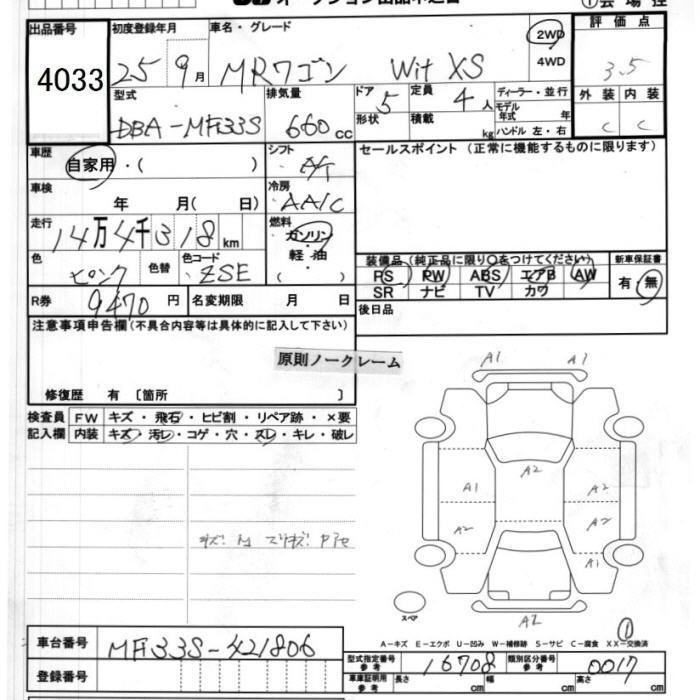 出品番号 初度登録年月 車名・グレード 2WD 評価点
4033 25 9月 MRワゴン Wit XS 4WD 3.5
型式 排気量 ドア 5 定員 4人 ディーラー・並行 外装 内装
DBA-MF33S 660cc 形状 積載 kg モデル年式 年 C C
ハンドル 左・右
車歴 自家用・( ) シフト A/T セールスポイント (正常に機能するものに限ります)
車検 年 月( 日) 冷房 AAC
走行 14万4千318km 燃料 ガソリン
色 ピンク 色替 色コード ZSE 軽・油 ( )
装備品(純正品に限り○をつけてください) 新車保証書
PS PW ABS エアB AW 有・無
SR ナビ TV カワ
R券 9470円 名変期限 月 日 後日品
注意事項申告欄(不具合内容等は具体的に記入して下さい)
原則ノークレーム
修復歴 有 〔箇所 〕
検査員 FW キズ・飛石・ヒビ割・リペア跡・×要
記入欄 内装 キズ・汚レ・コゲ・穴・スレ・キレ・破レ
A1 A1
A2
A1 A1
A2 A2
A1
スペア
A2
A-キズ E-エクボ U-凹み W-補修跡 S-サビ C-腐食 XX-交換済
車台番号 MF33S-421806
型式指定番号 参考 16708 類別区分番号 参考 0017
登録番号
車庫証明用 参考 長さ cm 幅 cm 高さ cm